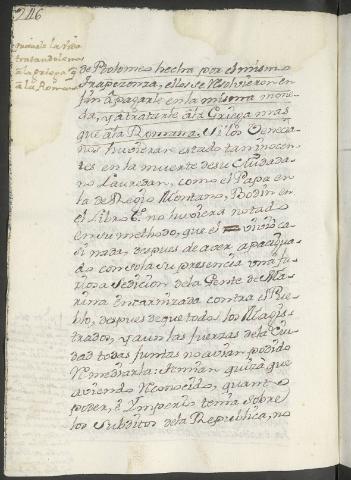 246
de Ptolomeo hecha por el mismo
Trapezonza, ellos se resolvieron en
fin à pagarle en la misma mone-
da, y à tratarle à la Griega mas
que à la Romana. Si los Venecia-
nos huvieran estado tan inocen-
tes en la muerte de su Ciudada-
no Lauredan, como el Papa en
la de Regio Montano, Bodin en
el Libro 6.º no huviera notado
en su methodo, que el vivio ca-
si nada, despues de aver apacigua-
do con sola su presencia una fu-
riosa sedicion de la Gente de Ma-
rina encarnizada contra el Pue-
blo, despues de que todos los Magis-
trados, y aun las fuerzas de la Ciu-
dad todas juntas no avian podido
remediarla: temian quizà que
aviendo reconocido, quanto
poder, è Imperio tenia sobre
los Subditos de la Republica, no